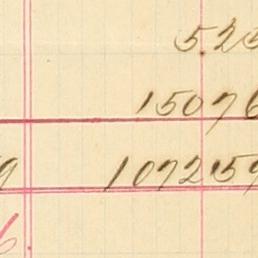 525
15076
9 1072159
6